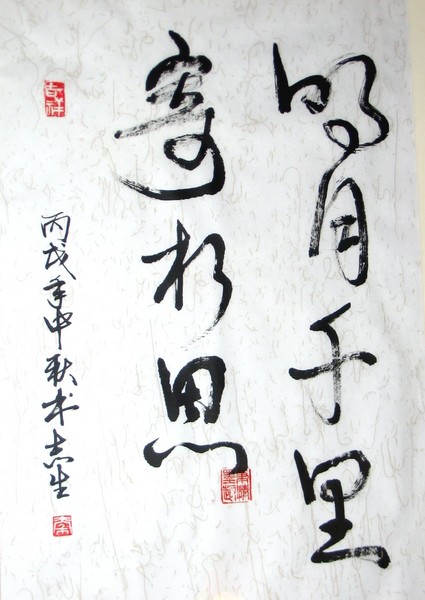 明月千里
寄相思
丙戌年中秋木志生
吉祥